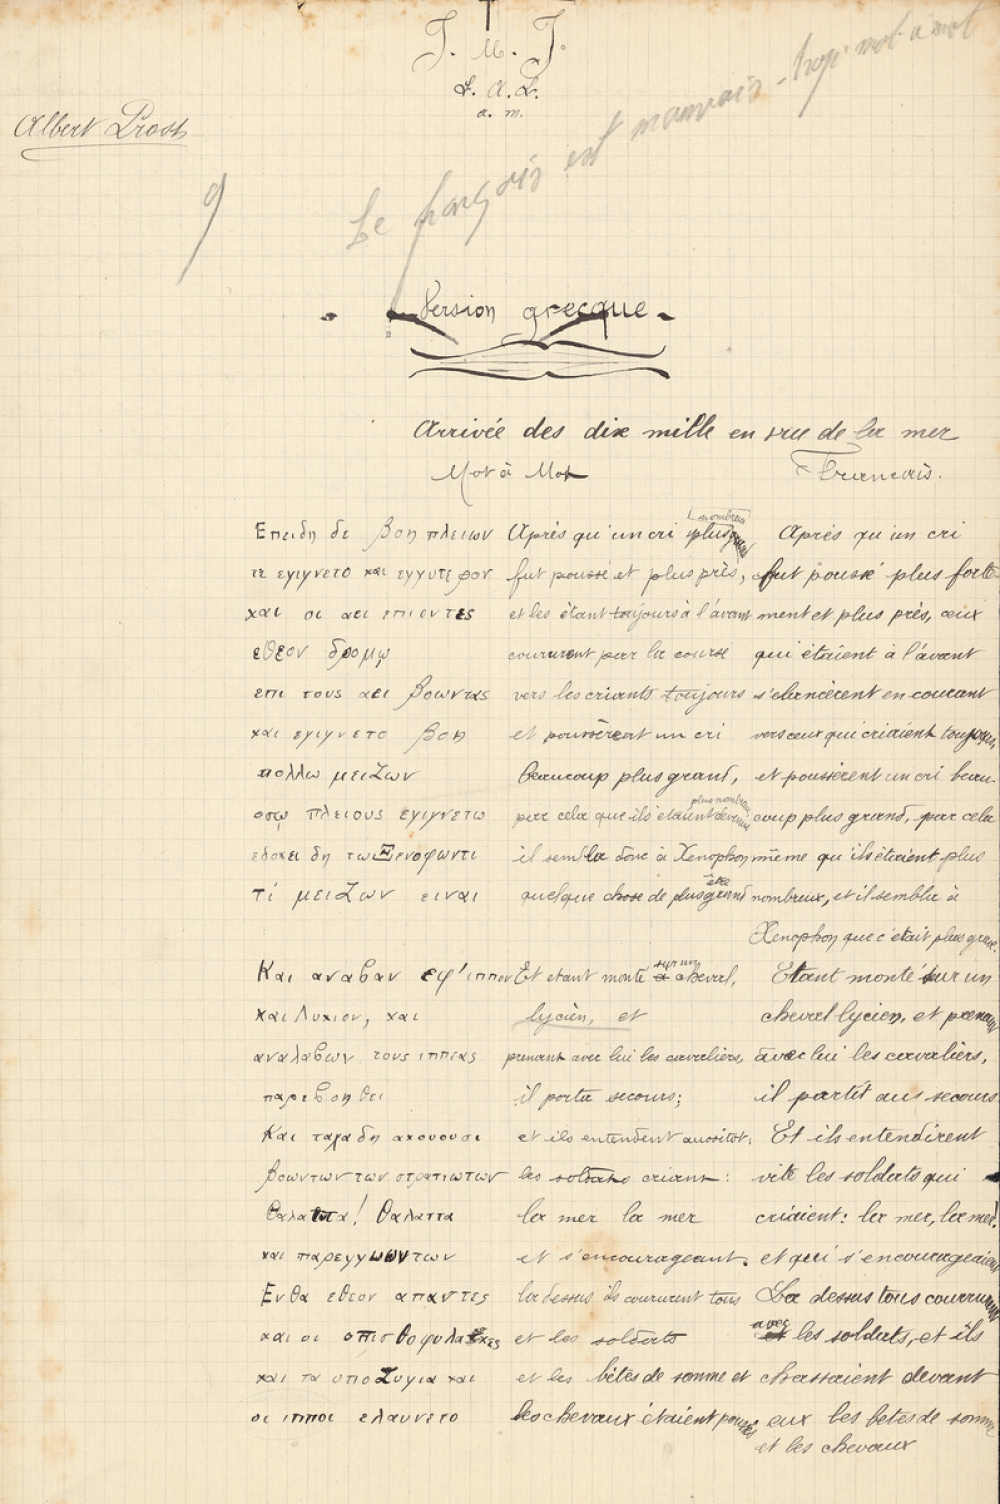 J. M. J.
S. A. L.
a. m.
Albert Prost
Le français est mauvais - trop mot à mot
9
- Version grecque -
Arrivée des dix mille en vue de la mer
Mot à Mot Français.
Επειδη δε βοη πλειων Après qu'un cri nombreux Après qu'un cri
τε εγιγνετο και εγγυτερον fut poussé et plus près, fut poussé plus forte-
και οι αει επιοντες et les étant toujours à l'avant ment et plus près, ceux
εθεον δρομῳ coururent par la course qui étaient à l'avant
επι τους αει βοωντας vers les criants toujours s'elancèrent en courant
και εγιγνετο βοη et poussèrent un cri vers ceux qui criaient toujours,
πολλω μειζων beaucoup plus grand, et poussèrent un cri beau-
οσῳ πλειους εγιγνετω par cela que ils étaient devenus plus nombreux coup plus grand, par cela
εδοκει δη τω Ξενοφωντι il sembla donc à Xenophon même qu'ils étaient plus
τί μειζων ειναι quelque chose de plus grand être nombreux, et il sembla à
Xenophon que c'était plus grave.
Και αναβαν εφ' ιππον Et etant monté sur un cheval, Etant monté sur un
και Λυκιον, και lycien, et cheval lycien, et prenant
αναλαβων τους ιππεας prenant avec lui les cavaliers, avec lui les cavaliers,
παρεβοηθει il porta secours; il partit aus secours
Και ταχα δη ακουουσι et ils entendent aussitot, Et ils entendirent
βοωντων των στρατιωτων les soldats criant : vite les soldats qui
Θαλαττα! Θαλαττα la mer la mer criaient : la mer, la mer!
και παρεγγυωντων et s'encourageant. et qui s'encourageaient
Ενθα εθεον απαντες la dessus ils coururent tous La dessus tous coururent
και οι οπισθοφυλακες et les soldats avec les soldats, et ils
και τα υποζυγια και et les bêtes de somme et chassaient devant
οι ιπποι ελαυνετο les chevaux étaient poussés eux les betes de somme
et les chevaux